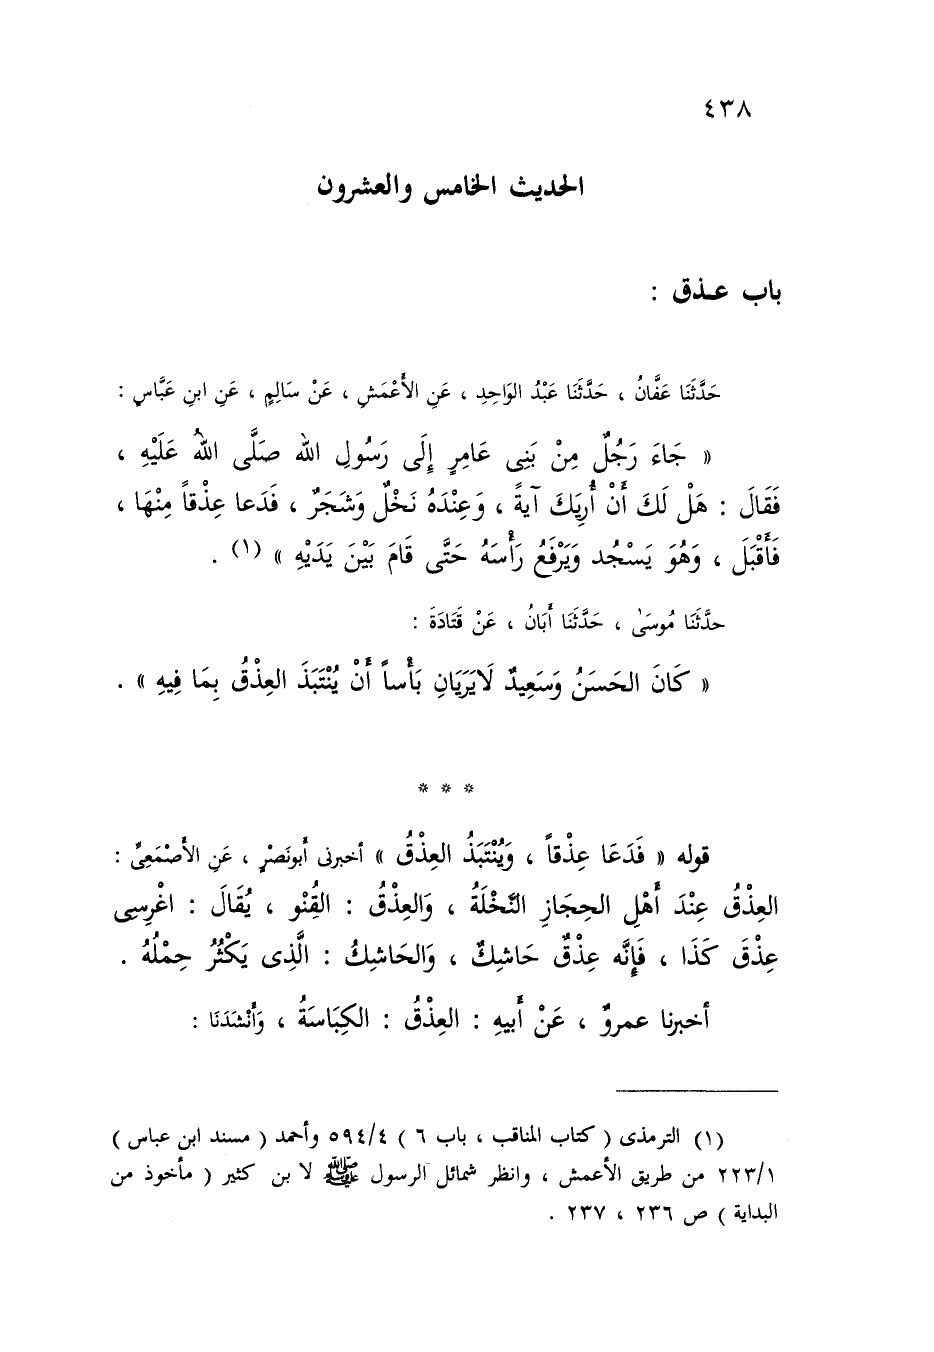 ٤٣٨
الحديث الخامس والعشرون
باب عـذق :
حَدَّثَنَا عَفَّانُ ، حَدَّثَنَا عَبْدُ الوَاحِدِ ، عَنِ الأَعْمَشِ ، عَنْ سَالِمٍ ، عَنِ ابنِ عَبَّاسٍ :
« جَاءَ رَجُلٌ مِنْ بَنِى عَامِرٍ إِلَى رَسُولِ اللهِ صَلَّى اللهُ عَلَيْهِ ،
فَقَالَ : هَلْ لَكَ أَنْ أُرِيَكَ آيةً ، وَعِنْدَهُ نَخْلٌ وَشَجَرٌ ، فَدَعا عِذْقاً مِنْهَا ،
فَأَقْبَلَ ، وَهُوَ يَسْجُد وَيَرْفَعُ رَأْسَهُ حَتَّى قَامَ بَيْنَ يَدَيْهِ » (١) .
حدَّثَنَا مُوسَىٰ ، حَدَّثَنَا أَبَانُ ، عَنْ قَتَادَةَ :
« كَانَ الحَسَنُ وَسَعِيدٌ لَايَرَيَانِ بَأْساً أَنْ يُنْتَبَذَ العِذْقُ بِمَا فِيهِ » .
* * *
قوله « فَدَعَا عِذْقاً ، وَيُنْتَبَذُ العِذْقُ » أخبرنى أَبونَصْرٍ ، عَنِ الأَصْمَعِىِّ :
العِذْقُ عِنْدَ أَهْلِ الحِجَازِ النَّخْلَةُ ، وَالعِذْقُ : القُِنْو ، يُقَالَ : اغْرِسِى
عِذْقَ كَذَا ، فَإِنَّه عِذْقٌ حَاشِكٌ ، وَالحَاشِكُ : الَّذِى يَكْثُرُ حِمْلُهُ .
أخبرنا عمروٌ ، عَنْ أَبيهِ : العِذْقُ : الكِبَاسَةُ ، وَأَنْشَدَنَا :
(١) الترمذى ( كتاب المناقب ، باب ٦ ) ٥٩٤/٤ وأحمد ( مسند ابن عباس )
٢٢٣/١ من طريق الأعمش ، وانظر شمائل الرسول ﷺ لا بن كثير ( مأخوذ من
البداية ) ص ٢٣٦ ، ٢٣٧ .